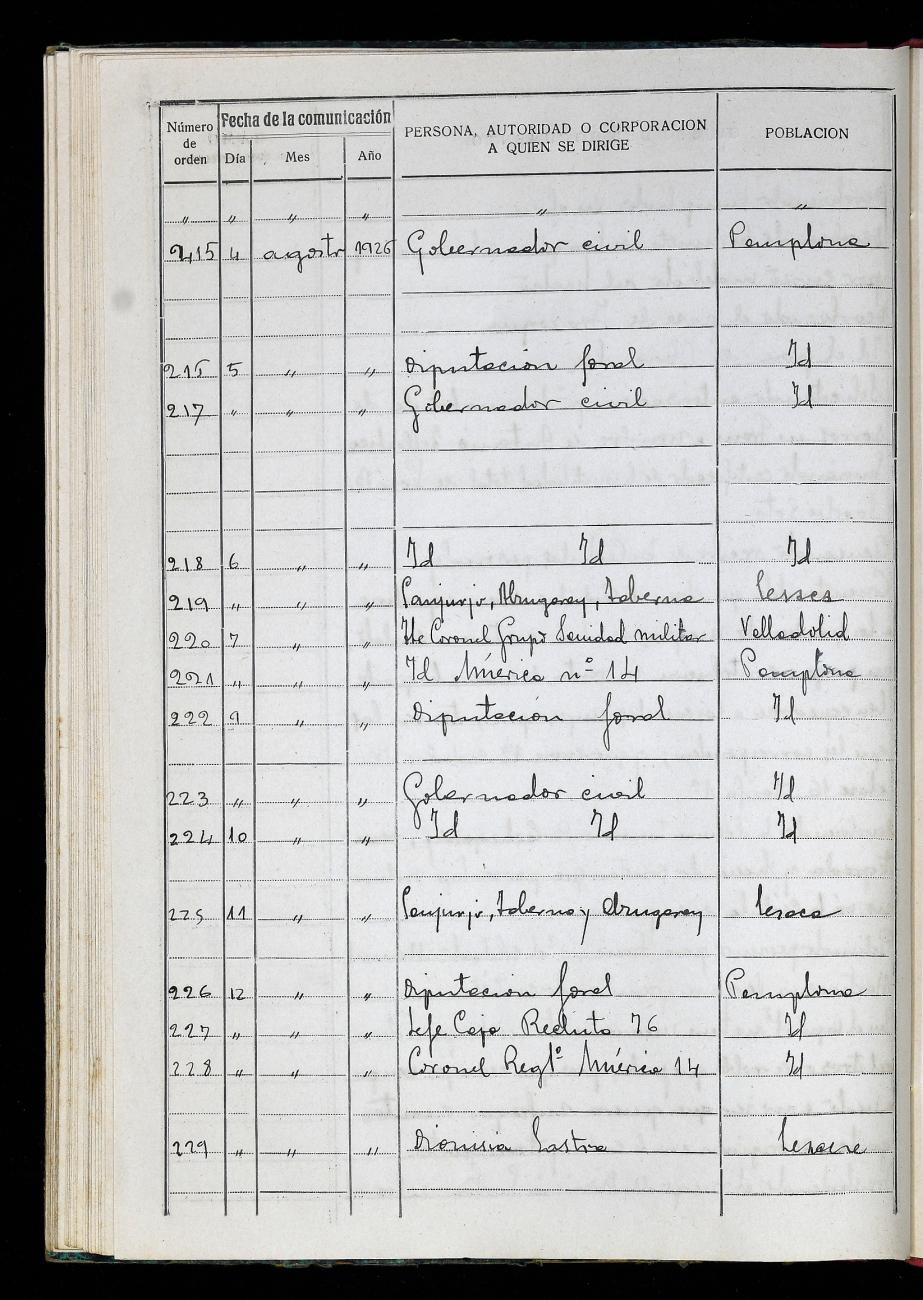 Número de orden Fecha de la comunicación Día Mes Año PERSONA, AUTORIDAD O CORPORACION A QUIEN SE DIRIGE POBLACION
" " " " " "
215 4 agosto 1926 Gobernador civil Pamplona
216 5 " " Diputacion foral Id
217 " " " Gobernador civil Id
218 6 " " Id Id Id
219 " " " Sanjurjo, Taberna Lesaca
220 7 " " Tte Coronel Grupo Sanidad militar Valladolid
221 " " " Id América nº 14 Pamplona
222 9 " " Diputación foral Id
223 " " " Gobernador civil Id
224 10 " " Id Id Id
225 11 " " Sanjurjo, Taberna y Lesaca
226 12 " " Diputacion foral Pamplona
227 " " " Jefe Caja Recluta 76 Id
228 " " " Coronel Regtº América 14 Id
229 " " " Dionisia Lastra